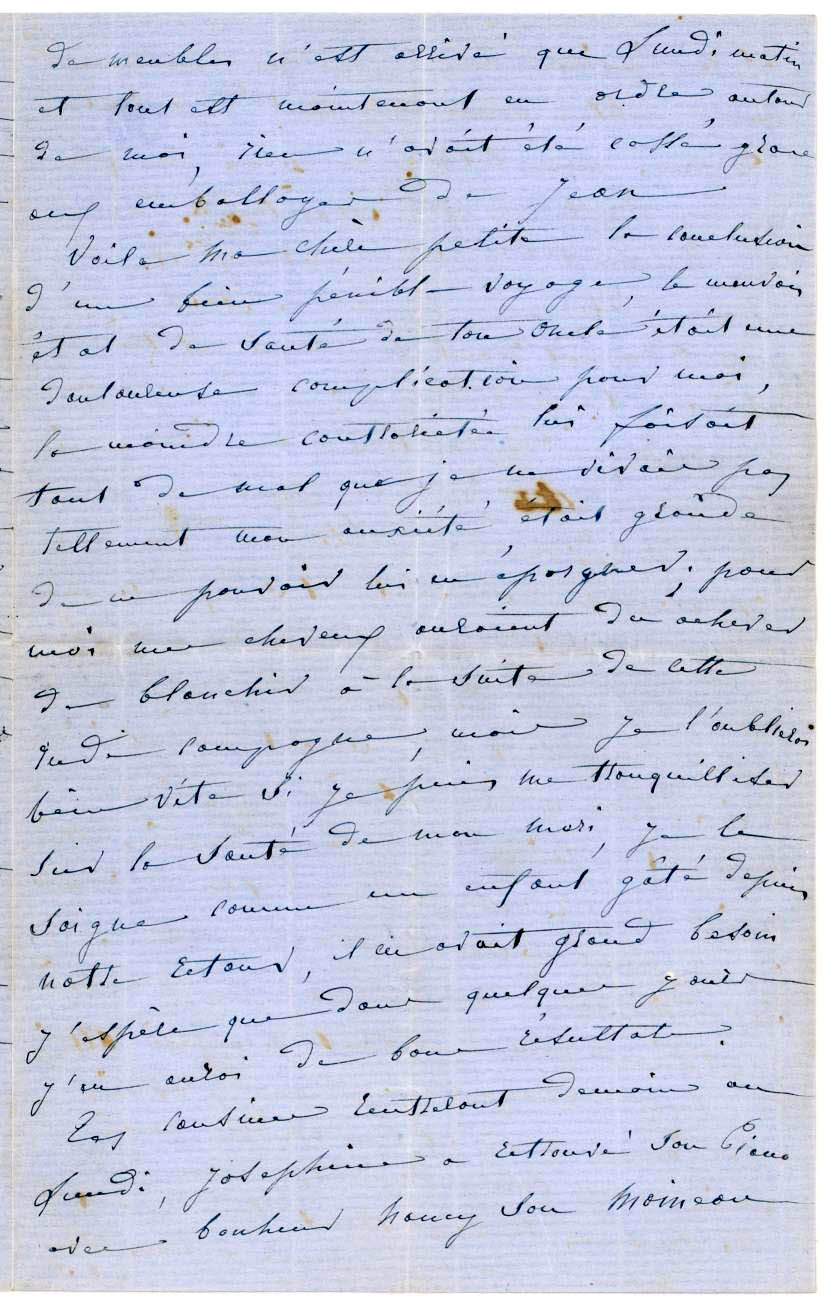 de meubles n'est arrivé que Lundi matin
et tout est maintenant en ordre autour
de moi, rien n'avait été cassé grace
aux emballages de Jean
Voila ma chère petite la conclusion
d'un bien pénible voyage, le mauvais
état de santé de ton oncle était une
douloureuse complication pour moi,
la moindre contrariétée lui faisait
tant de mal que je ne vivais pas
tellement mon anxiété était grande
de ne pouvoir lui en épargner; pour
moi mes cheveux auraient du achever
de blanchir à la suite de cette
rude campagne, mais je l'oublierai
bien vite si je puis me tranquilliser
sur la santé de mon mari, je le
soigne comme un enfant gâté depuis
notre retour, il en avait grand besoin
j'espère que dans quelques jours
j'en aurai de bons résultats.
Tes cousines rentreront demain ou
Lundi, Joséphine a retrouvé son Piano
avec bonheur Nancy son Moineau